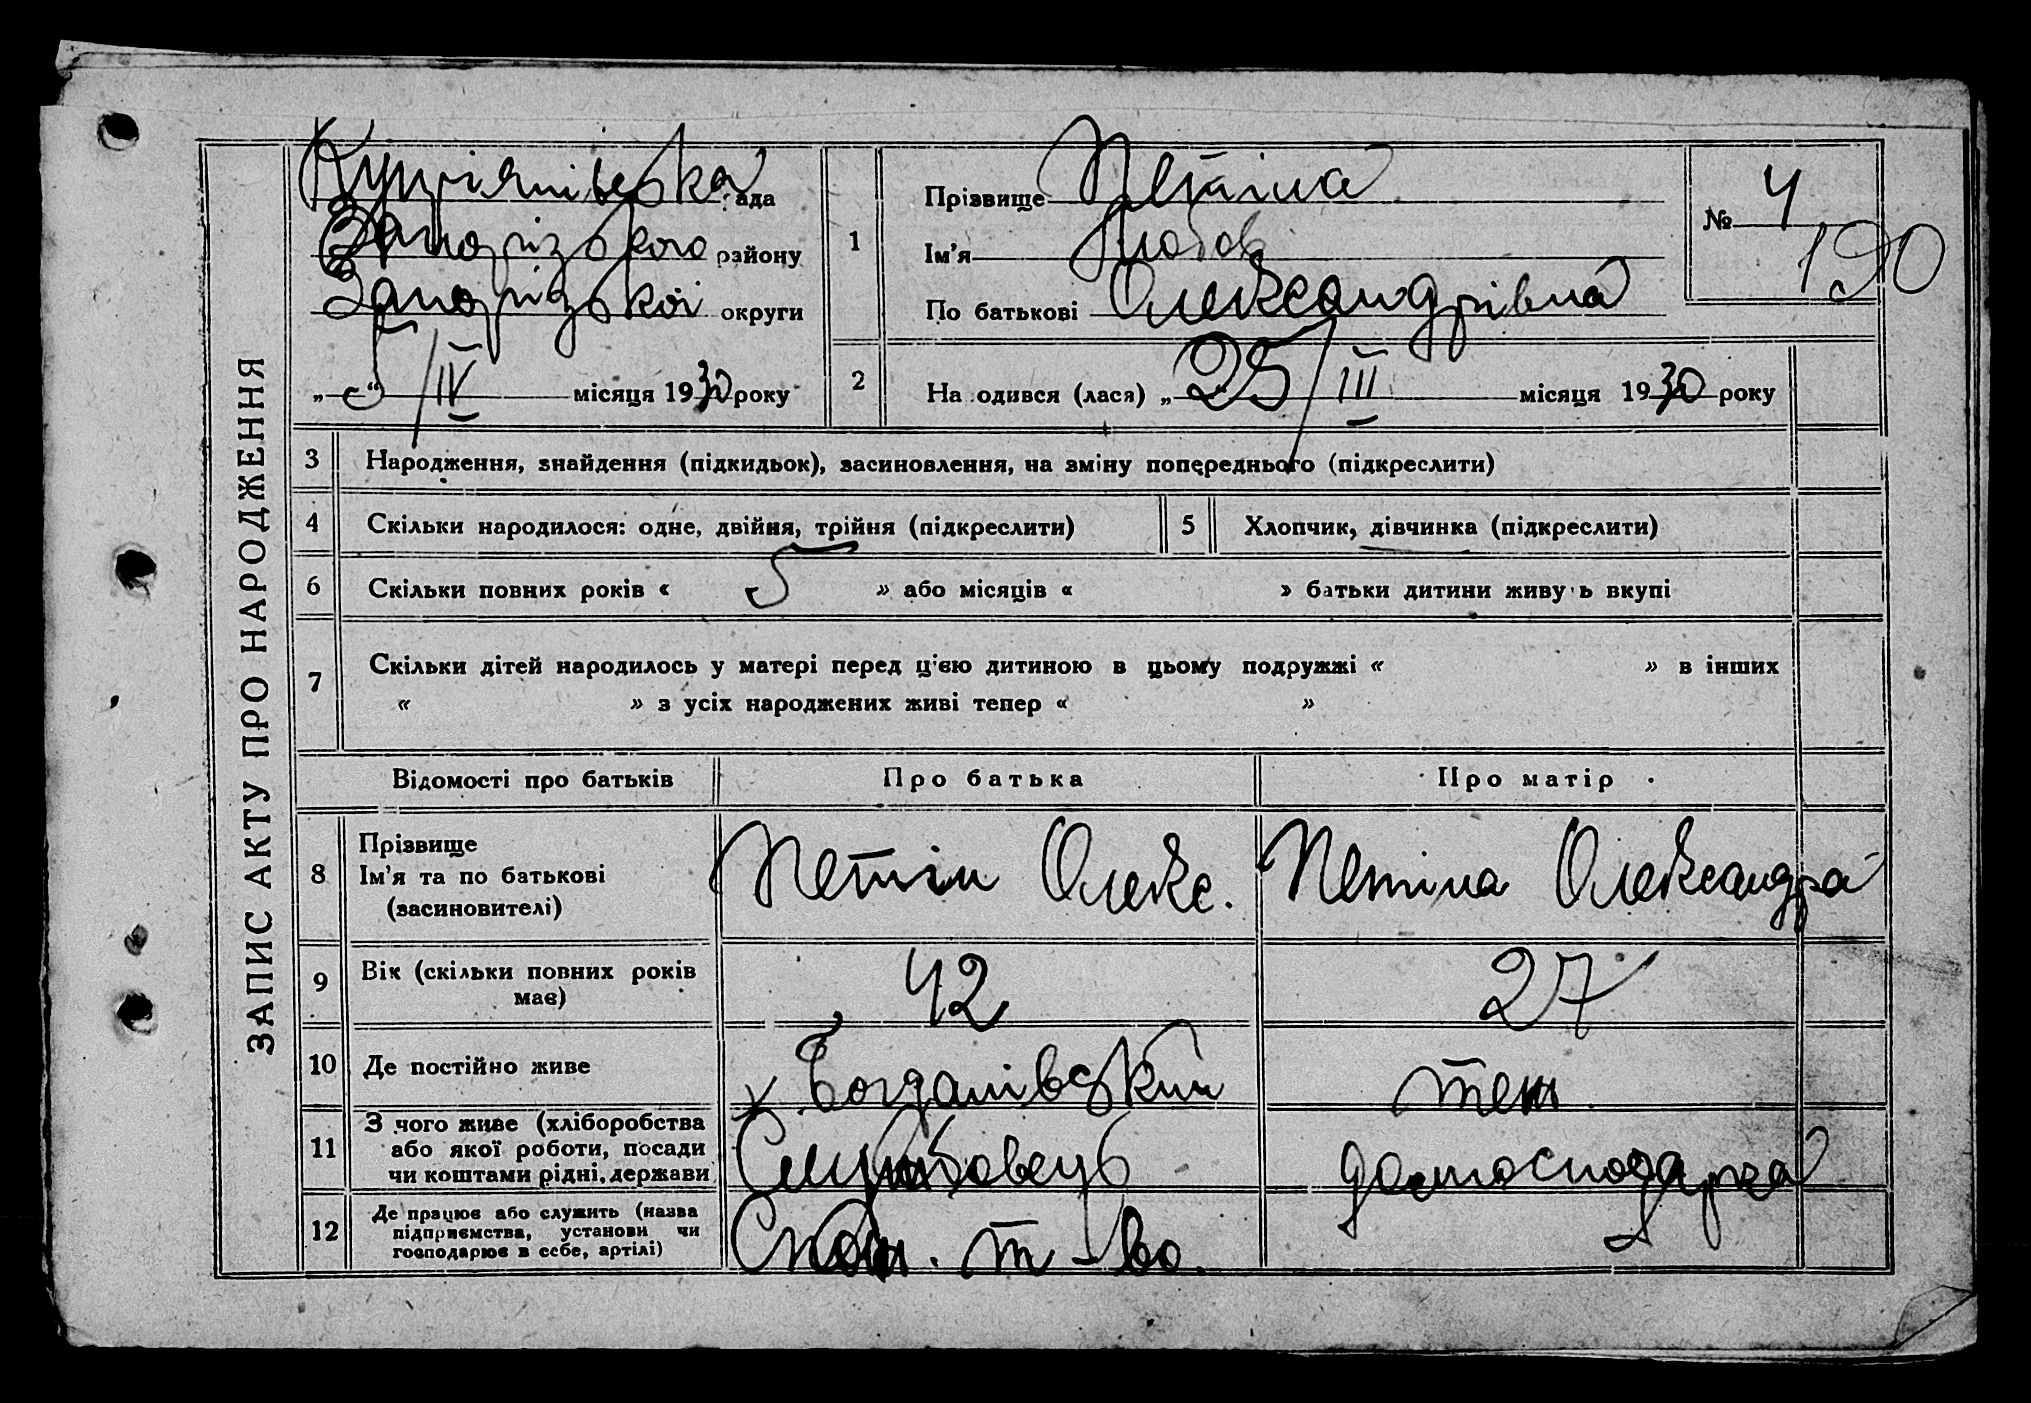 ЗАПИС АКТУ ПРО НАРОДЖЕННЯ
Купріянівська рада
Запорізького району
Запорізької округи
„ 5 “ / IV місяця 1930 року
1
Прізвище Петіна
Ім'я Любов
По батькові Олександрівна
№ 4
190
2
На одився (лася) „ 25 / III місяця 1930 року
3 Народження, знайдення (підкидьок), засиновлення, на зміну попереднього (підкреслити)
4 Скільки народилося: одне, двійня, трійня (підкреслити) 5 Хлопчик, дівчинка (підкреслити)
6 Скільки повних років « 5 » або місяців « » батьки дитини живуть вкупі
7 Скільки дітей народилось у матері перед ц'єю дитиною в цьому подружжі « » в інших
« » з усіх народжених живі тепер « »
Відомості про батьків Про батька Про матір
8 Прізвище
Ім'я та по батькові
(засиновителі)
Петін Олекс. Петіна Олександра
9 Вік (скільки повних років
має)
42 27
10 Де постійно живе х Богданівський теж
11 З чого живе (хліборобства
або якої роботи, посади
чи коштами рідні, держави
Службовець домогосподарка
12 Де працює або служить (назва
підприємства, установи чи
господарює в себе, артілі)
т-во.